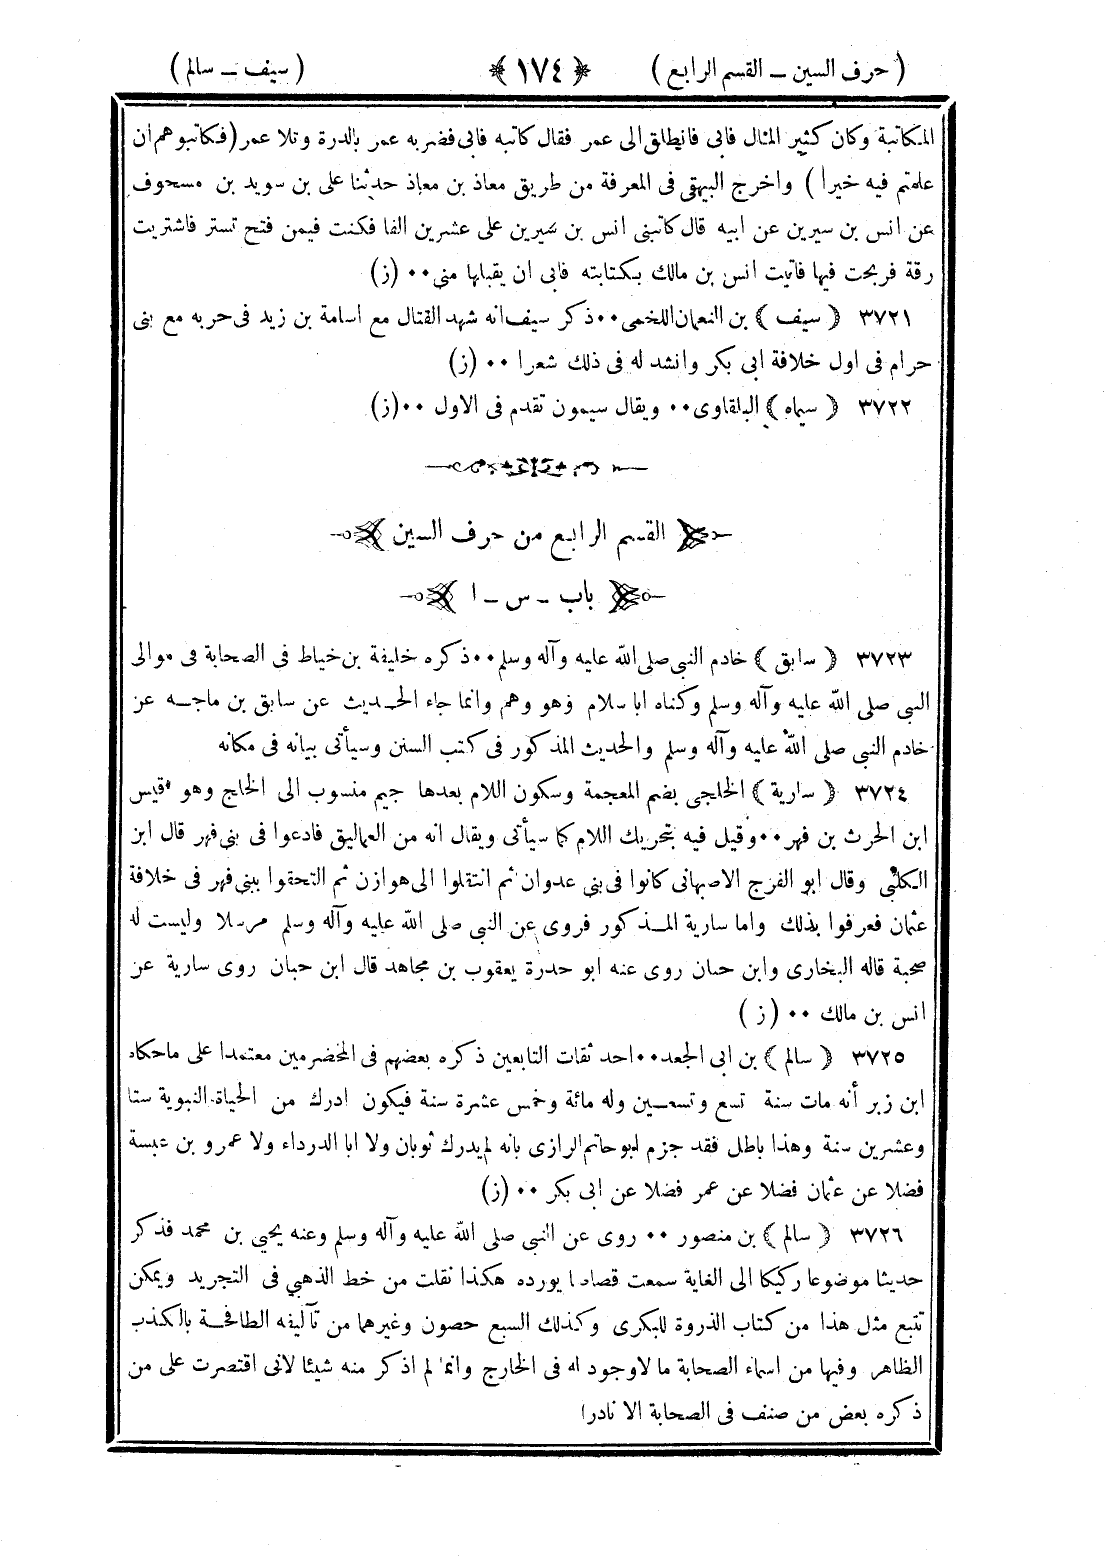 ( حرف السين ــ القسم الرابع ) ﴿ ١٧٤ ﴾ ( سيف ــ سالم )
المكاتبة وكان كثير المال فابى فانطلق الى عمر فقال كاتبه فابى فضربه عمر بالدرة وتلا عمر (فكاتبوهم ان
علمتم فيه خيرا ) واخرج البيهقى فى المعرفة من طريق معاذ بن معاذ حدثنا على بن سويد بن مسحوف
عن انس بن سيرين عن ابيه قال كاتبنى انس بن سيرين على عشرين الفا فكنت فيمن فتح تستر فاشتريت
رقة فربحت فيها فاتيت انس بن مالك بكتابته فابى ان يقبلها منى٠٠ (ز)
٣٧٢١ ﴿ سيف ﴾ بن النعمان اللخمى٠٠ذكر سيف انه شهد القتال مع اسامة بن زيد فى حربه مع بنى
حرام فى اول خلافة ابى بكر وانشد له فى ذلك شعرا ٠٠ (ز)
٣٧٢٢ ﴿ سيماه ﴾ البلقاوى٠٠ ويقال سيمون تقدم فى الاول ٠٠(ز)
القسم الرابع من حرف السين
باب ـ س ـ ا
٣٧٢٣ ﴿ سابق ﴾ خادم النبى صلى الله عليه وآله وسلم٠٠ذكره خليفة بن خياط فى الصحابة فى موالى
النبى صلى الله عليه وآله وسلم وكناه ابا سلام وهو وهم وانما جاء الحديث عن سابق بن ماجه عن
خادم النبى صلى الله عليه وآله وسلم والحديث المذكور فى كتب السنن وسيأتى بيانه فى مكانه
٣٧٢٤ ﴿ سارية ﴾ الخلجى بضم المعجمة وسكون اللام بعدها جيم منسوب الى الخلج وهو قيس
ابن الحرث بن فهر٠٠وقيل فيه بتحريك اللام كما سيأتى ويقال انه من العماليق فادعوا فى بنى فهر قال ابن
الكلبى وقال ابو الفرج الاصبهانى كانوا فى بنى عدوان ثم انتقلوا الى هوازن ثم التحقوا ببنى فهر فى خلافة
عثمان فعرفوا بذلك واما سارية المذكور فروى عن النبى صلى الله عليه وآله وسلم مرسلا وليست له
صحبة قاله البخارى وابن حبان روى عنه ابو حدرة يعقوب بن مجاهد قال ابن حبان روى سارية عن
انس بن مالك ٠٠ ( ز )
٣٧٢٥ ﴿ سالم ﴾ بن ابى الجعد٠٠احد ثقات التابعين ذكره بعضهم فى المخضرمين معتمدا على ماحكاه
ابن زبر أنه مات سنة تسع وتسعين وله مائة وخمس عشرة سنة فيكون ادرك من الحياة النبوية ستا
وعشرين سنة وهذا باطل فقد جزم ابوحاتم الرازى بانه لم يدرك ثوبان ولا ابا الدرداء ولا عمرو بن عبسة
فضلا عن عثمان فضلا عن عمر فضلا عن ابى بكر ٠٠ (ز)
٣٧٢٦ ﴿ سالم ﴾ بن منصور ٠٠ روى عن النبى صلى الله عليه وآله وسلم وعنه يحيى بن محمد فذكر
حديثا موضوعا ركيكا الى الغاية سمعت قصاصا يورده هكذا نقلت من خط الذهبي فى التجريد ويمكن
تتبع مثل هذا من كتاب الذروة للبكرى وكذلك السبع حصون وغيرهما من تآليفه الطافحة بالكذب
الظاهر وفيها من اسماء الصحابة ما لاوجود له فى الخارج وانما لم اذكر منه شيئا لانى اقتصرت على من
ذكره بعض من صنف فى الصحابة الا نادرا